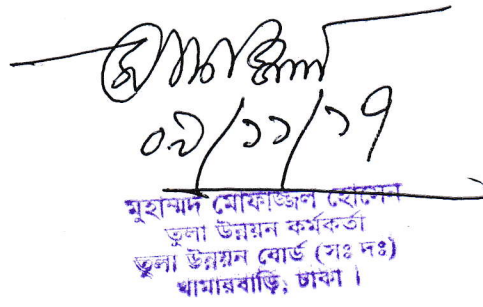 ০৯/১১/১৭
মুহাম্মদ মোফাজ্জল হোসেন
তুলা উন্নয়ন কর্মকর্তা
তুলা উন্নয়ন বোর্ড (সঃ দঃ)
খামারবাড়ি, ঢাকা।